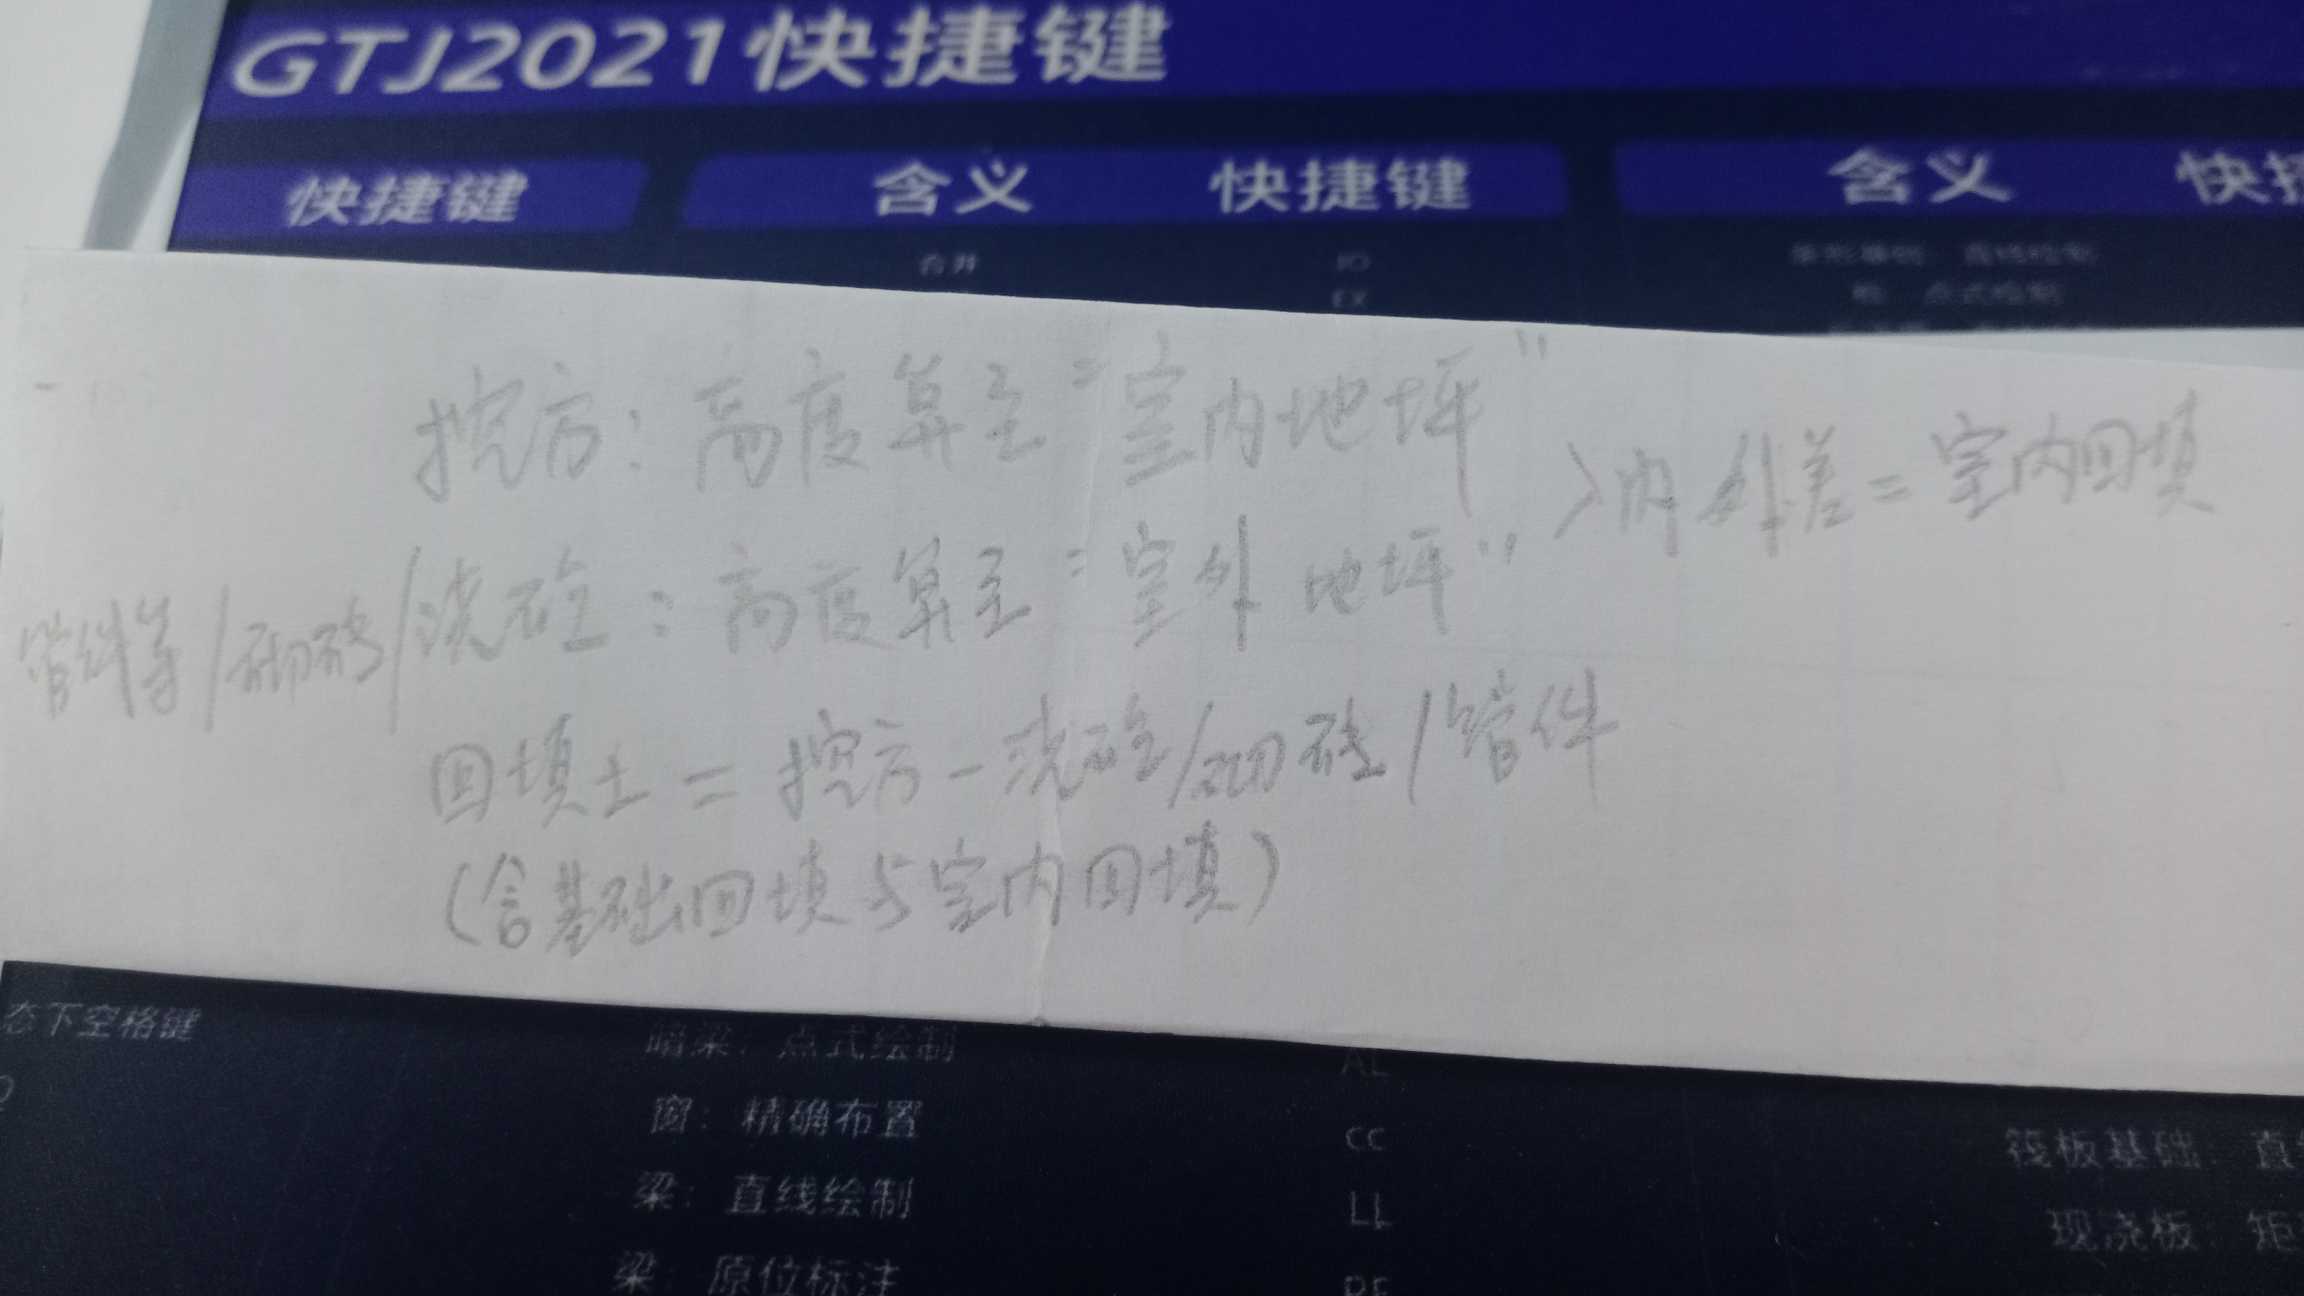 GTJ2021快捷键
快捷键 含义 快捷键 含义
合并 JO
EX
挖方：高度算至"室内地坪"
>内外差=室内回填
管件等/砌砖/浇砼：高度算至"室外地坪"
回填土=挖方-浇砼/砌砖/管件
(含基础回填与室内回填)
态下空格键
暗梁：点式绘制 AL
窗：精确布置 CC
梁：直线绘制 LL
梁：原位标注 PF
筏板基础：直
现浇板：矩